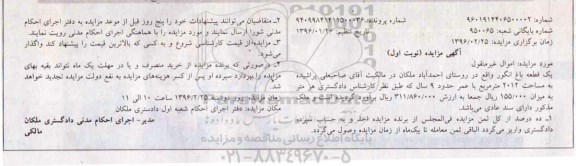 شماره: ۹۶۰۱۹۱۴۴۰۶۵۰۰۰۰۲ شماره پرونده: ۹۴۰۹۹۸۴۱۴۱۵۰۰۰۳۶
شماره بایگانی شعبه: ۹۵۰۰۶۵ تاریخ تنظیم: ۱۳۹۶/۰۱/۲۳
زمان برگزاری مزایده: ۱۳۹۶/۰۲/۲۵
آگهی مزایده (نوبت اول)
مورد مزایده: اموال غیرمنقول
یک قطعه باغ انگور واقع در روستای احمدآباد ملکان در مالکیت آقای صاحبعلی
به مساحت ۲۰۱۲ مترمربع با عمر حدود ۹ سال که طبق نظر کارشناس دادگستری هر متر
به میزان ۱۵۵/۰۰۰ ریال جمعا به ارزش ۳۱۱/۸۶۰/۰۰۰ ریال برآورد گردیده است و ملک
مذکور دارای سند عادی می‌باشد.
۱ـ ده درصد از کل ثمن مزایده فی‌المجلس از برنده مزایده اخذ و به حساب سپرده
دادگستری واریز می‌گردد الباقی ثمن معامله تا یک‌ماه از زمان مزایده وصول می‌گردد.
۲ـ متقاضیان می‌توانند پیشنهادات خود را پنج روز قبل از موعد مزایده به دفتر اجرای احکام
مدنی شورا ارسال نمایند و مورد مزایده را با هماهنگی اجرای احکام مدنی رویت نمایند.
۳ـ مزایده از قیمت کارشناسی شروع و به کسی که بالاترین قیمت را پیشنهاد کند واگذار
می‌شود.
۴ـ درصورتی که برنده مزایده از خرید منصرف و یا در مهلت یک ماه نتواند بقیه بهای
مزایده را بپردازد سپرده او پس از کسر هزینه‌های مزایده به نفع دولت مزایده تجدید خواهد
شد.
زمان مزایده: روز دوشنبه ۱۳۹۶/۲/۲۵ ساعت ۱۰ الی ۱۱
مکان مزایده دفتر اجرای احکام شعبه اول دادگستری ملکان
مدیر- اجرای احکام مدنی دادگستری ملکان
مالکی
پایگاه اطلاع رسانی مناقصه و مزایده
۰۲۱-۸۸۳۴۹۶۷۰-۵